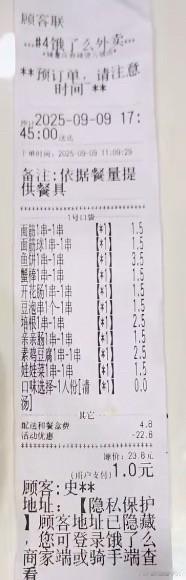 顾客联
...#4饿了么外卖...
**预订单，请注意
时间**
2025-09-09 17:
45:00送达
下单时间：2025-09-09 11:09:29
备注：依据餐量提
供餐具
1号口袋
面筋1串-1串 【*1】 1.5
面筋球1串-1串 【*1】 1.5
鱼饼1串-1串 【*1】 3.5
蟹棒1串-1串 【*1】 1.5
开花肠1串-1串 【*1】 1.5
豆泡串1个-1串 【*1】 1.5
培根1串-1串 【*1】 2.5
亲亲肠1串-1串 【*1】 1.5
素鸡豆腐1串-1串 【*1】 2.5
娃娃菜1串-1串 【*1】 1.5
口味选择-1人份[清 【*1】 0.0
汤]
其它
配送和餐盒费 4.8
活动优惠 -22.8
原价：23.8元
(用户支付)1.0元
顾客：史**
地址：【隐私保护
】顾客地址已隐藏
，您可登录饿了么
商家端或骑手端查
看